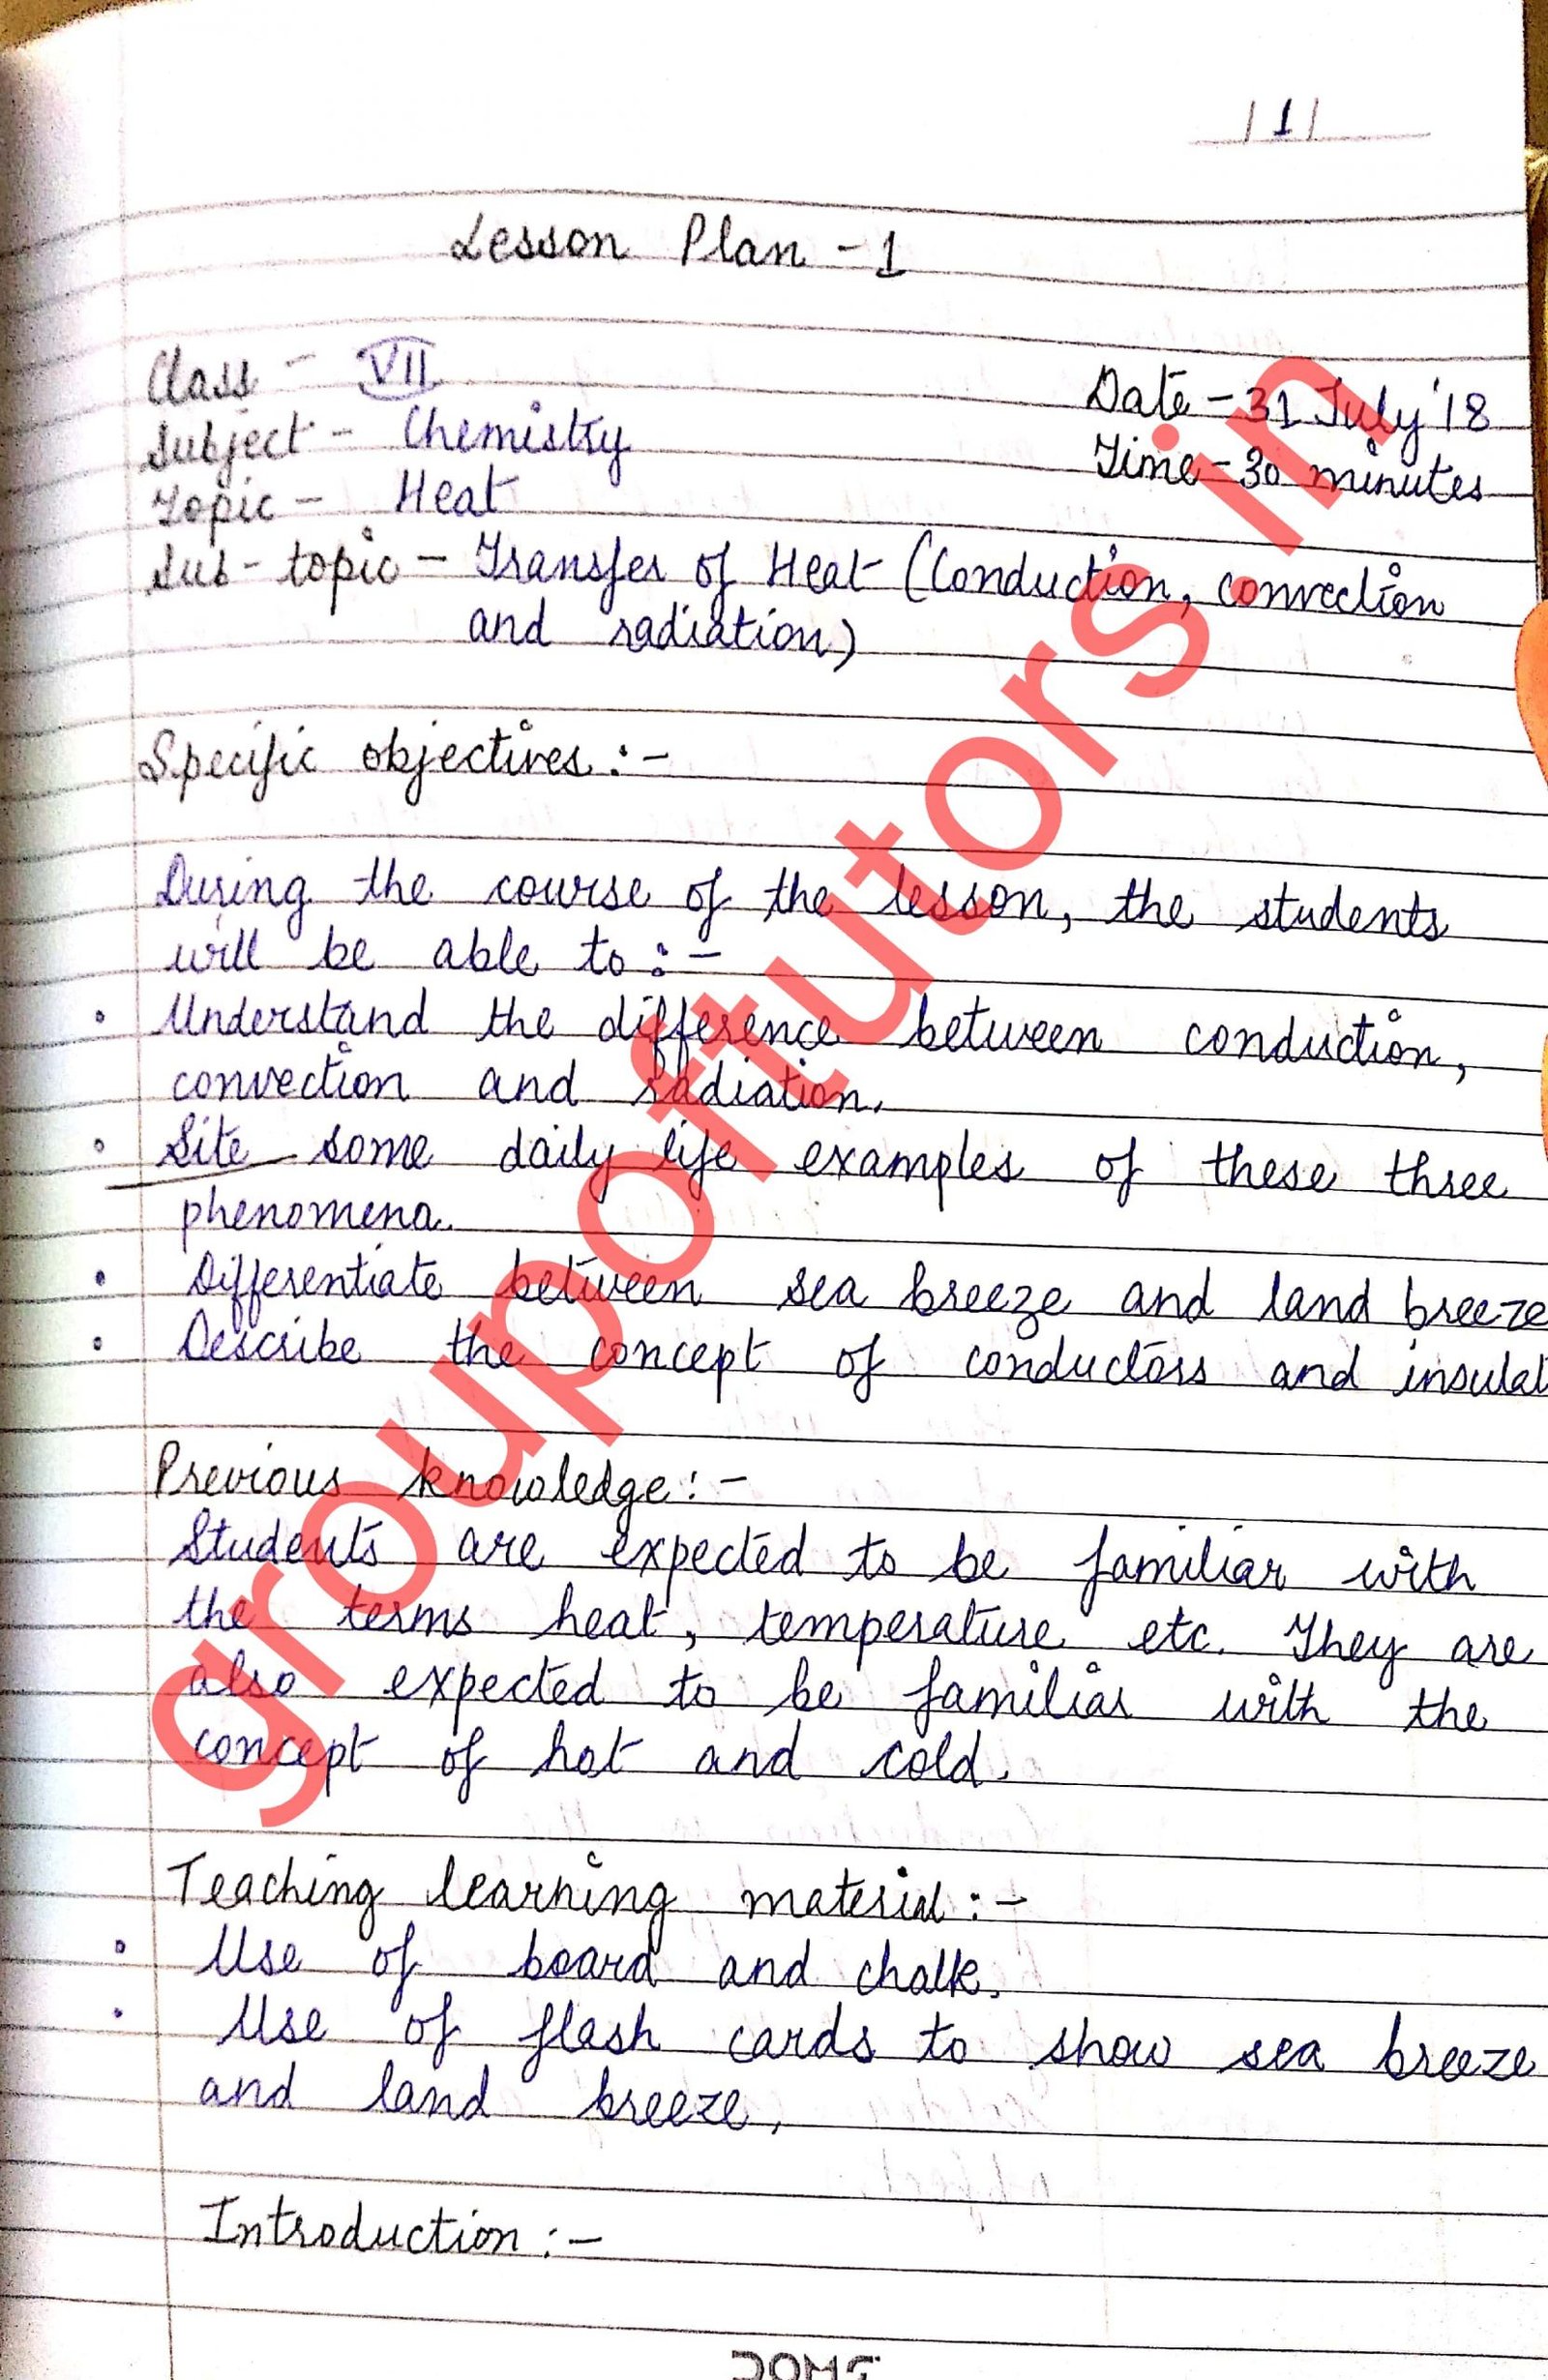 / 1 /
Lesson Plan - 1
Class - VII
Date - 31 July '18
Subject - Chemistry
Time - 30 minutes
Topic - Heat
Sub-topic - Transfer of Heat (Conduction, convection
and radiation)
Specific objectives :-
During the course of the lesson, the students
will be able to :-
• Understand the difference between conduction,
convection and radiation.
• Site some daily life examples of these three
phenomena.
• Differentiate between sea breeze and land breeze
• Describe the concept of conductors and insulat
Previous knowledge :-
Students are expected to be familiar with
the terms heat, temperature etc. They are
also expected to be familiar with the
concept of hot and cold.
Teaching learning material :-
• Use of board and chalk.
• Use of flash cards to show sea breeze
and land breeze.
Introduction :-
groupoftutors.in